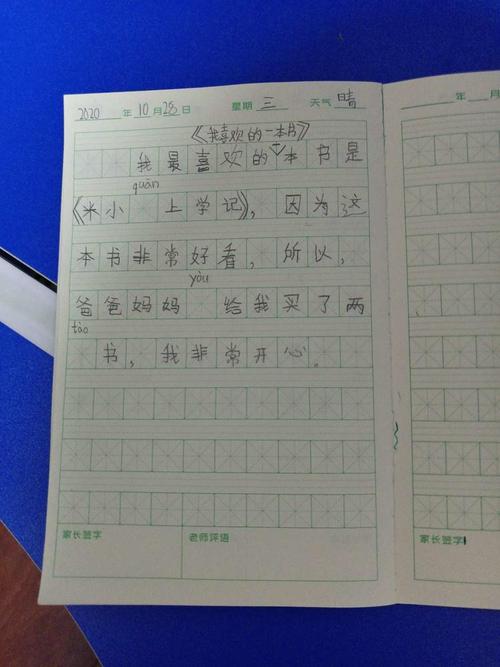 2020 年 10 月 28 日 星期 三 天气 晴
《我喜欢的一本书》
我最喜欢的一本书是
quān
《米小 上学记》，因为这
本书非常好看，所以，
yòu
爸爸妈妈 给我买了两
tào
书，我非常开心。
家长签字
老师评语
年 月
家长签字